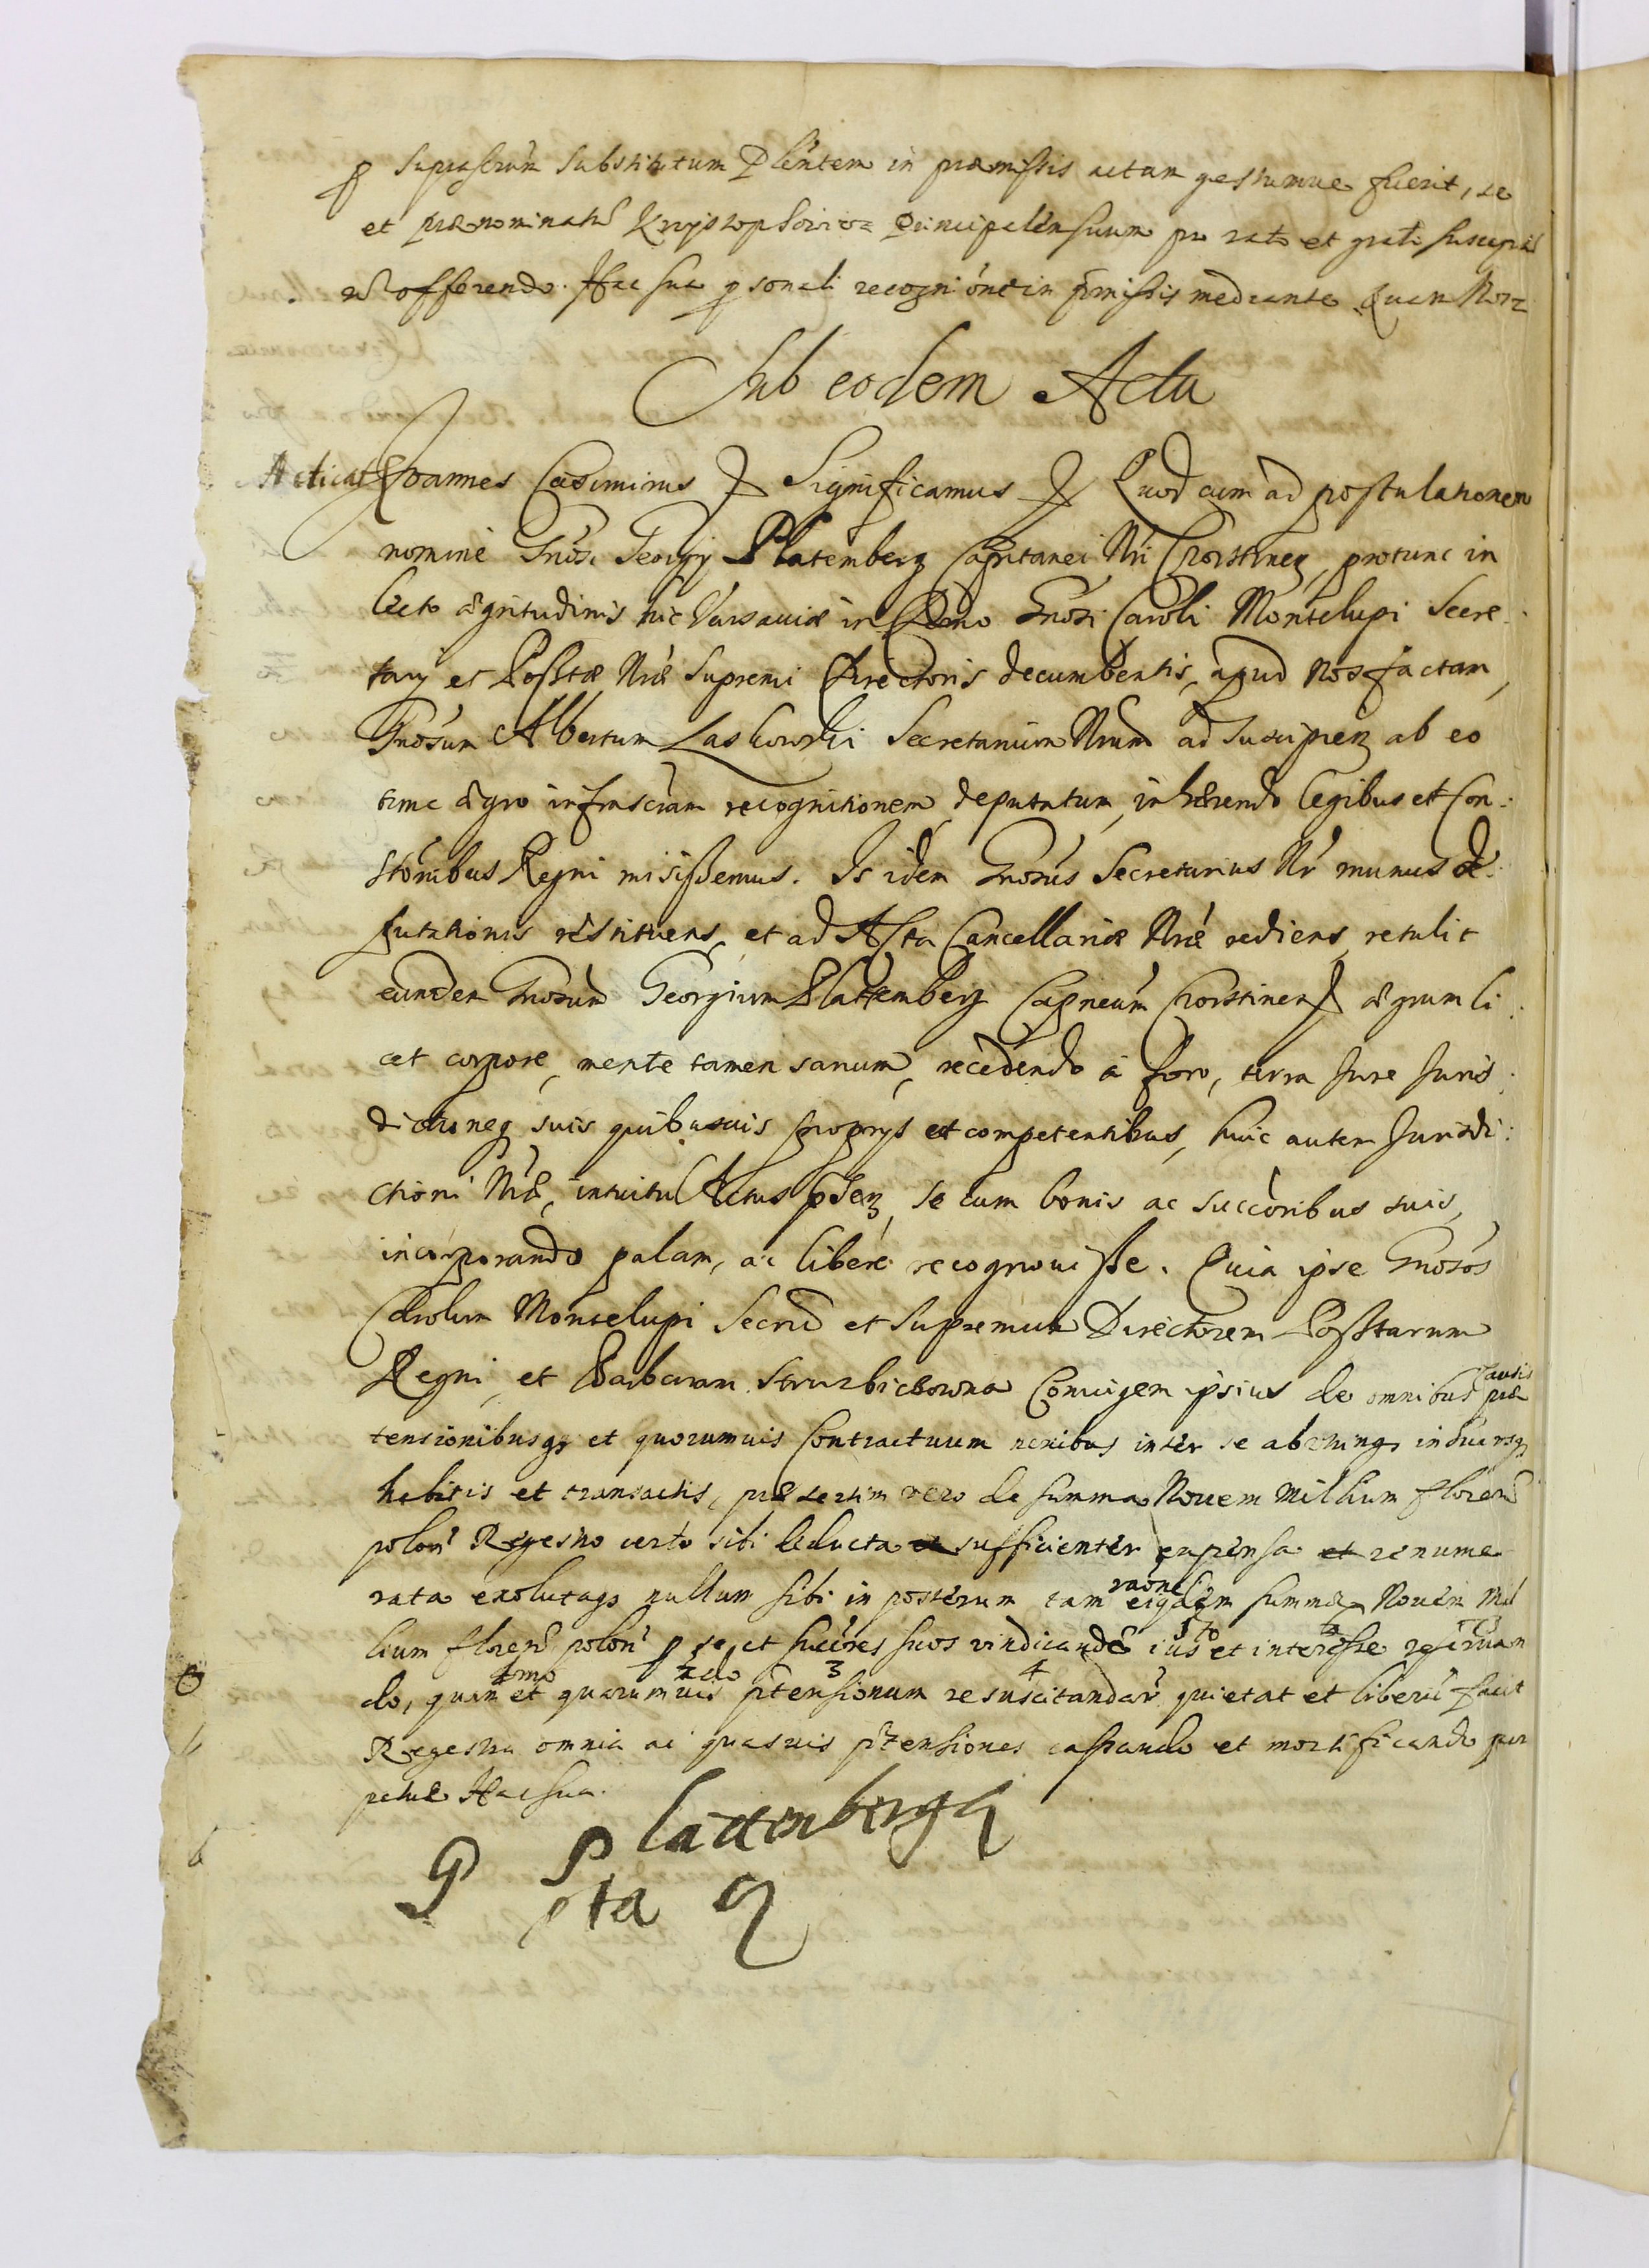 p suprascrũm substitutum Plẽntem in præmissis actum gestumue fuerit, se
et prænominatũ Krzysztophowicz Principalem suum pro rato et grato suscept
offerendo. Hac sua p̱sonali recogniõne in p̃missis mediante
Sub eodem Actu
Acticat Joannes Casimirus Significamus Quod cum ad postulationem
nomine Gnõsi Georgij Platemberg Capitanei Nri protunc in
lecto ægritudinis hic Varsauiæ in Domo Gnõsi Caroli Montelupi Secre
tarij et Posstæ Nræ Supremi Directoris decumbentis, apud Nos factam,
Gnõsum Albertum Laskowski Secretarium Nrum ad suscipien ab eo
tunc ægro infrascram recognitionem deputatum, inhærendo legibus et Con
stõnibus Regni misissemus. Is idem Gnosus Secretarius Nr munus de
putationis restituens, et ad Acta Cancellariæ Nræ rediens, retulit
eundem Gnosum Georgium Plattemberg Capneum ægrum li
cet corpore, mente tamen sanum, recedendo a foro, terra Jure Juris
dictioneq suis quibusuis proprijs et competentibus, huic autem Jurisdi
ctioni Nræ, intuitu Actus p̃sen, se cum bonis ac succõribus suis,
incorporando palam, ac libere recognouisse. Quia ipse Gnosos
Carolum Montelupi Secrũ et Supremum Directorem Posstarum
Regni, et Barbaram Coniugem ipsius de omnibus causis præ
tensionibusq et quorumuis Contractuum nexibus inter se ab inuicem
habitis et transactis, præsertim vero de summa Nouem Millium floren
polon Regestro certo sibi deducta et sufficienter expensa et renume
rata exolutaq nullum sibi in posterum tam raõne eiqdem summæ Nouem Mil
lium floren polon p se et succres suos vindicandi ius et interesse reseruan
do, quam et quarumuis p̃tensionum resuscitandar quietat et liberũ facit
1mo 2do 3 4
Regestra omnia ac quasuis p̃tensiones cassando et mortificando per
petue Hac sua.
P Plattenbergk